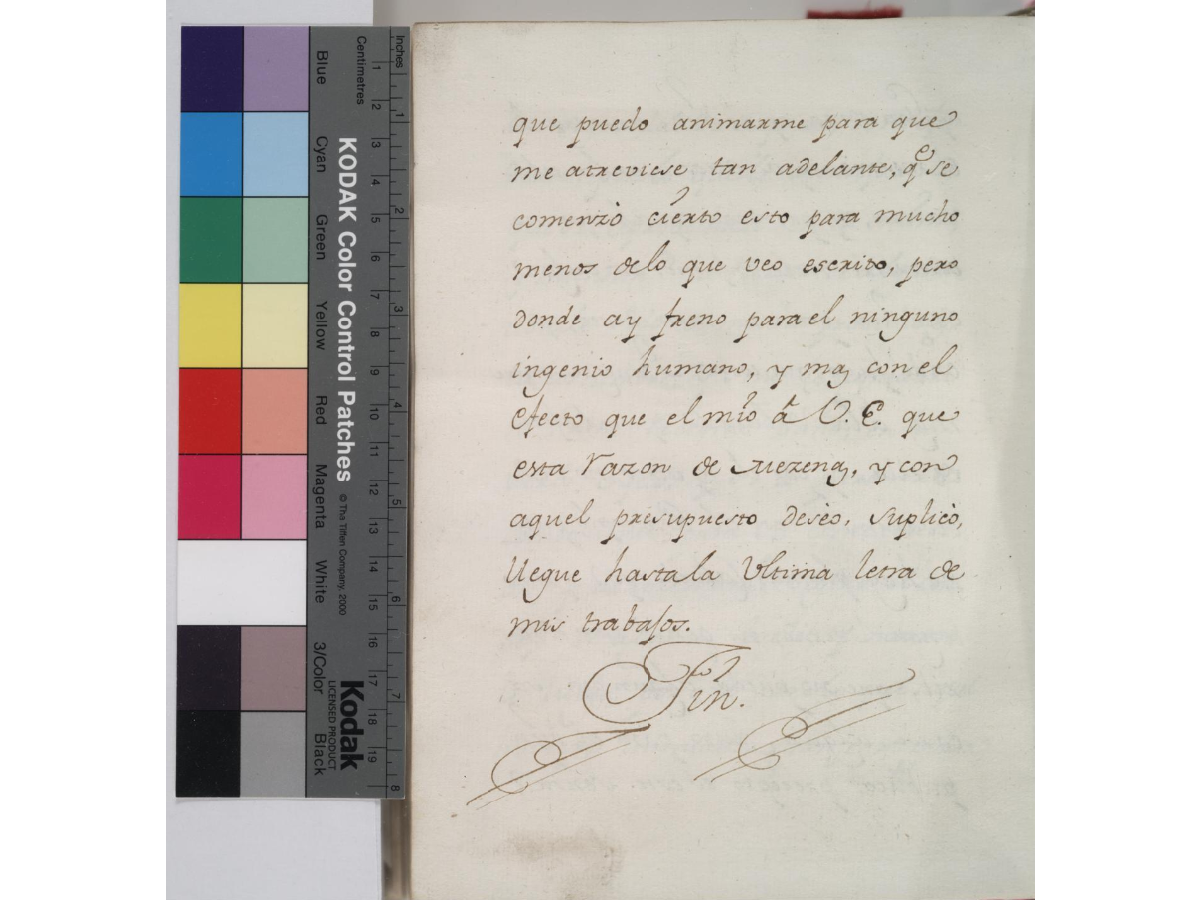 que puedo animarme para que
me atreviese tan adelante, q.e se
comenzò cierto esto para mucho
menos delo que veo escrito, pero
donde ay freno parael ninguno
ingenio humano, y mas conel
efecto que el mio à V. E. que
esta razon de
y con
aquel presupuesto deseo, suplicò,
llegue hastala Vltima letra de
mis trabajos.
Fin.
Inches
Centimetres
1 2 3 4 5 6 7 8 9 10 11 12 13 14 15 16 17 18 19
1 2 3 4 5 6 7 8
KODAK Color Control Patches
© The Tiffen Company, 2000
Kodak
LICENSED PRODUCT
Blue Cyan Green Yellow Red Magenta White 3/Color Black